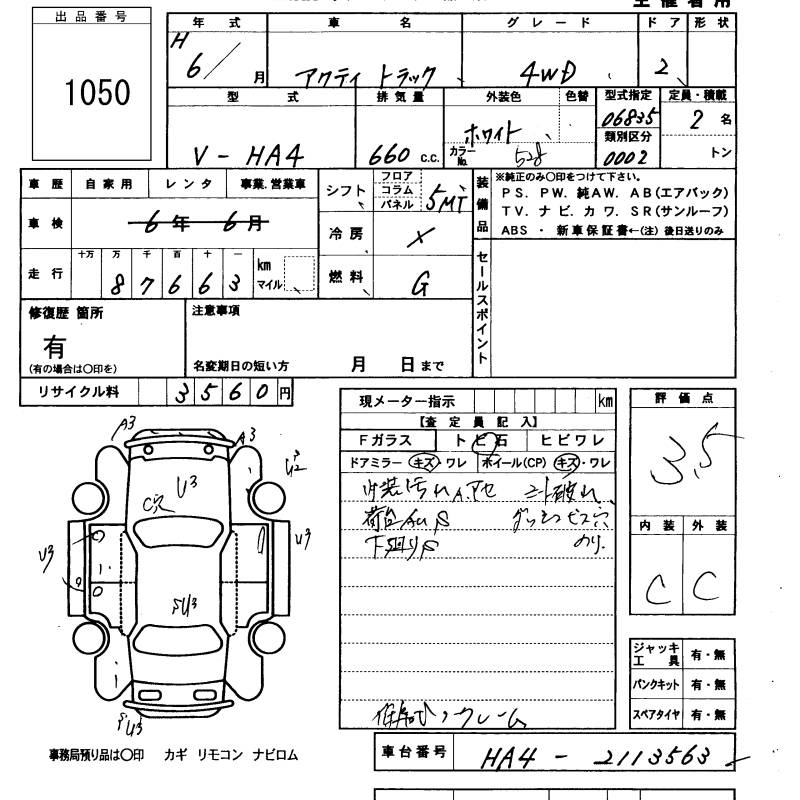 出品番号
1050
年式 車名 グレード ドア 形状
H 6/ 月 アクティ トラック 4WD 2
型式 排気量 外装色 色替 型式指定 定員・積載
06835 2 名
V-HA4 660 c.c. ホワイト カラーNo. 528 類別区分 0002 トン
車歴 自家用 レンタ 事業.営業車
車検 6年 6月
走行 十万 万 千 百 十 一
87663 km マイル
シフト フロア コラム パネル 5MT
冷房 ×
燃料 G
装備品
※純正のみ〇印をつけて下さい。
PS. PW. 純AW. AB(エアバック)
TV. ナビ. カワ. SR(サンルーフ)
ABS ・ 新車保証書←(注) 後日送りのみ
セールスポイント
修復歴 箇所
有
(有の場合は〇印を)
注意事項
名変期日の短い方 月 日まで
リサイクル料 3560 円
現メーター指示 km
【査定員記入】
Fガラス トビ石 ヒビワレ
ドアミラー キズ・ワレ ホイール(CP) キズ・ワレ
内装汚れ
下回りS
評価点
3.5
内装 外装
C C
ジャッキ工具 有・無
パンクキット 有・無
スペアタイヤ 有・無
A3 A3
U3
C穴
U3 U3
SU3
SU3
事務局預り品は〇印 カギ リモコン ナビロム
車台番号 HA4-2113563